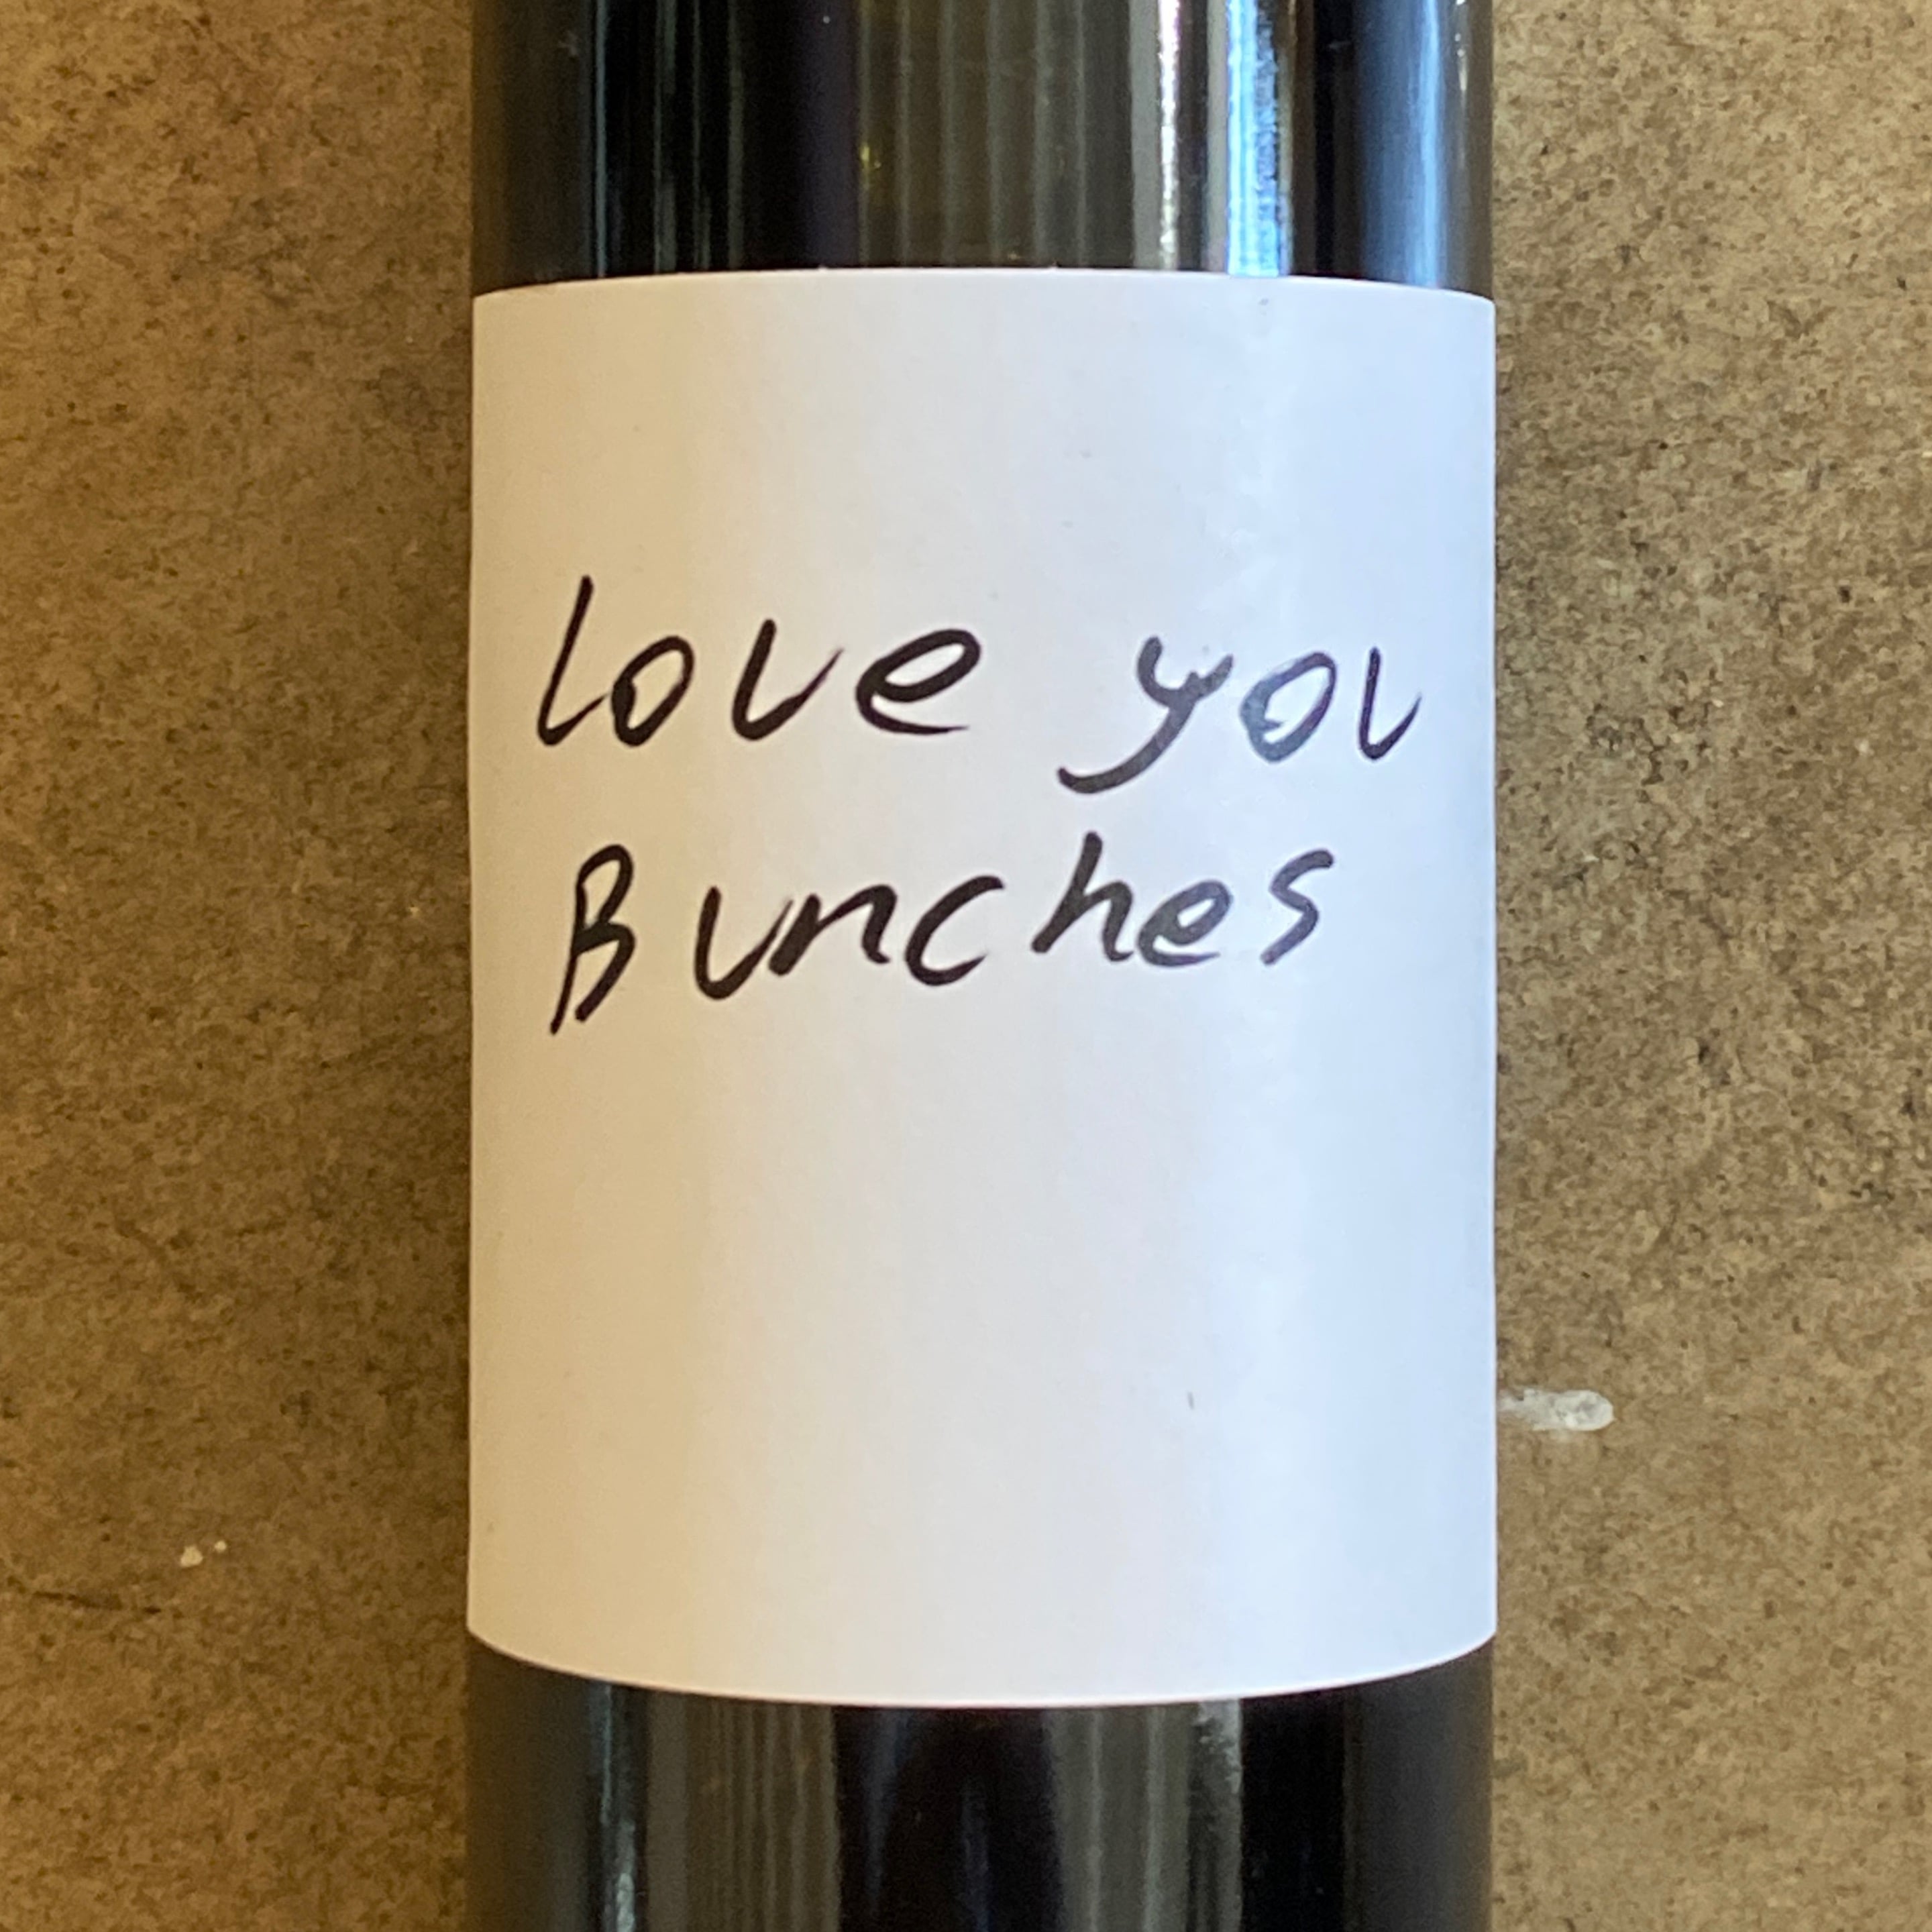 Love you
Bunches